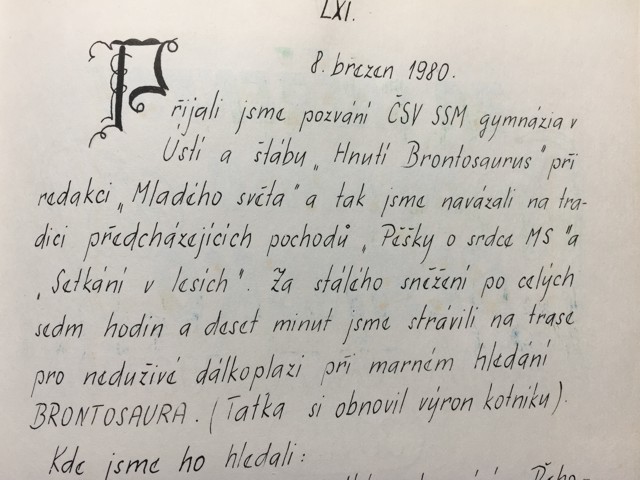 LXI.
8. březen 1980.
Přijali jsme pozvání ČSV SSM gymnázia v
Ústí a štábu „Hnutí Brontosaurus" při
redakci „Mladého světa" a tak jsme navázali na tra-
dici předcházejících pochodů „Pěšky o srdce MS" a
„Setkání v lesích". Za stálého sněžení po celých
sedm hodin a deset minut jsme strávili na trase
pro neduživé dálkoplazi při marném hledání
BRONTOSAURA. (Taťka si obnovil výron kotníku).
Kde jsme ho hledali: